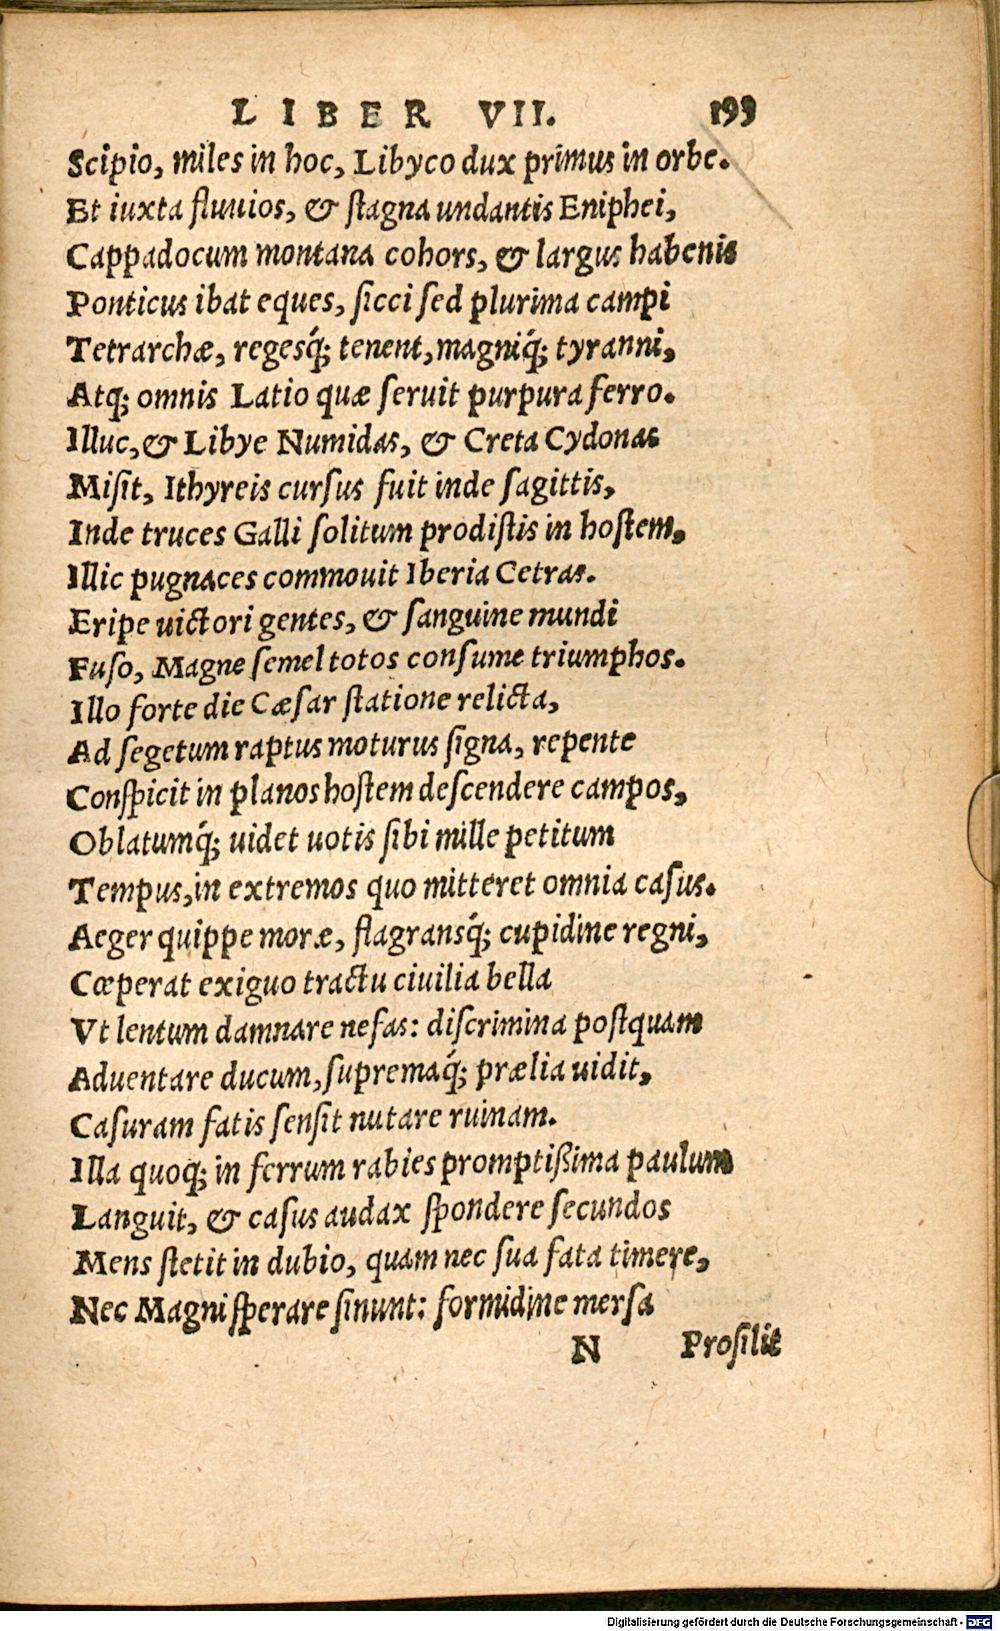 LIBER VII. 193
Scipio, miles in hoc, Libyco dux primus in orbe.
Et iuxta fluuios, & ſtagna undantis Eniphei,
Cappadocum montana cohors, & largus habenis
Ponticus ibat eques, ſicci ſed plurima campi
Tetrarchæ, regesq́; tenent, magniq́; tyranni,
Atq; omnis Latio quæ ſeruit purpura ferro.
Illuc, & Libye Numidas, & Creta Cydonas
Miſit, Ithyreis curſus fuit inde ſagittis,
Inde truces Galli ſolitum prodiſtis in hoſtem,
Illic pugnaces commouit Iberia Cetras.
Eripe uictori gentes, & ſanguine mundi
Fuſo, Magne ſemel totos conſume triumphos.
Illo forte die Cæſar ſtatione relicta,
Ad ſegetum raptus moturus ſigna, repente
Conſpicit in planos hoſtem deſcendere campos,
Oblatumq́; uidet uotis ſibi mille petitum
Tempus, in extremos quo mitteret omnia caſus.
Aeger quippe moræ, flagransq́; cupidine regni,
Cœperat exiguo tractu ciuilia bella
Vt lentum damnare nefas: diſcrimina poſtquam
Aduentare ducum, ſupremaq́; prælia uidit,
Caſuram fatis ſenſit nutare ruinam.
Illa quoq; in ferrum rabies promptißima paulum
Languit, & caſus audax ſpondere ſecundos
Mens ſtetit in dubio, quam nec ſua fata timere,
Nec Magni ſperare ſinunt: formidine merſa
N Proſilit
Digitalisierung gefördert durch die Deutsche Forschungsgemeinschaft - DFG